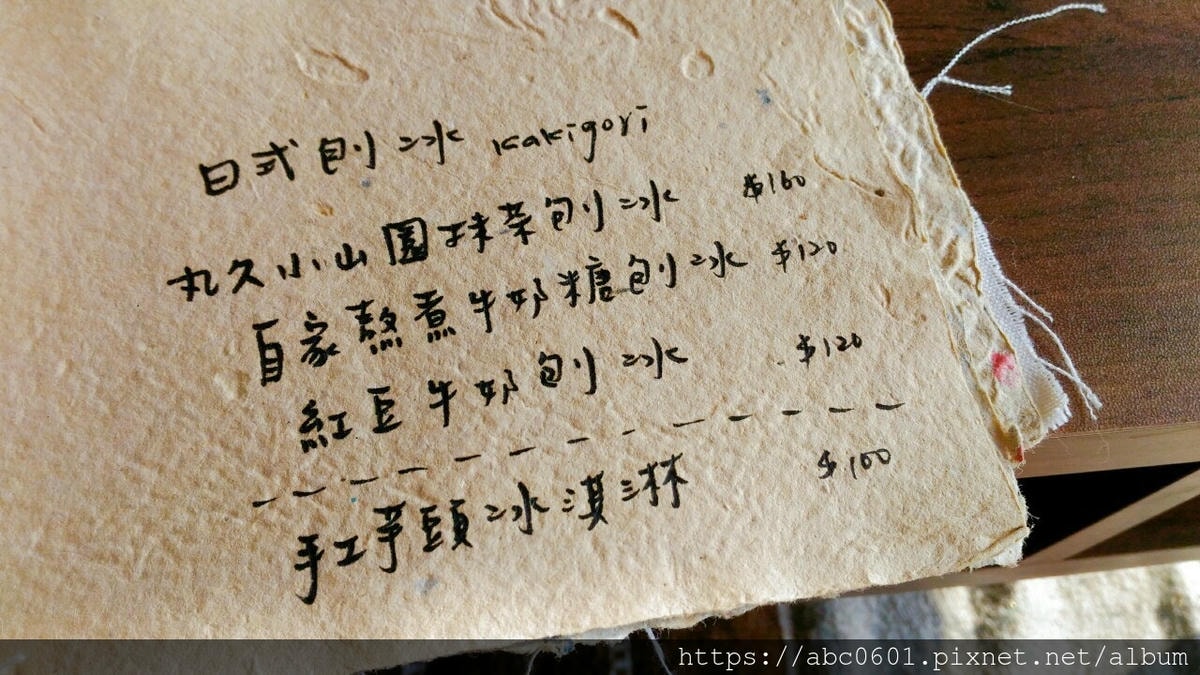 日式刨冰 kakigori
丸久小山園抹茶刨冰 $160
自家熬煮牛奶糖刨冰 $120
紅豆牛奶刨冰 $120
手工芋頭冰淇淋 $100
https://abc0601.pixnet.net/album